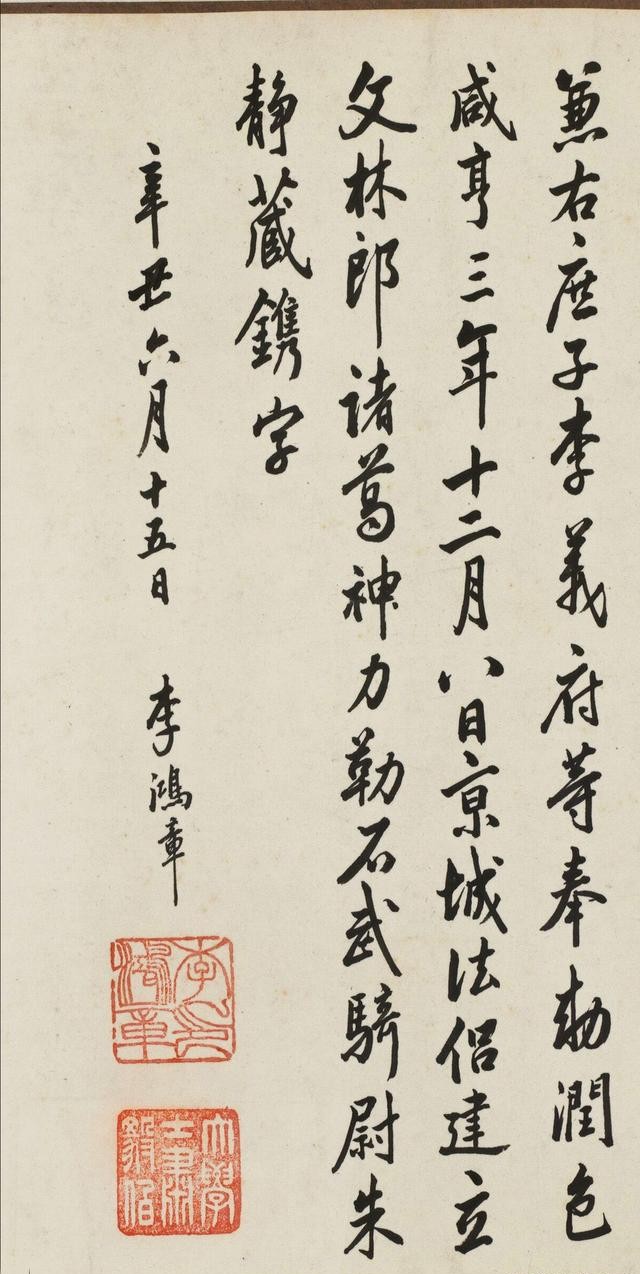 兼右庶子李義府等奉勅潤色
咸亨三年十二月八日京城法侶建立
文林郎諸葛神力勒石武騎尉朱
静藏鐫字
辛丑六月十五日
李鴻章
李鴻章印
大學士肅毅伯